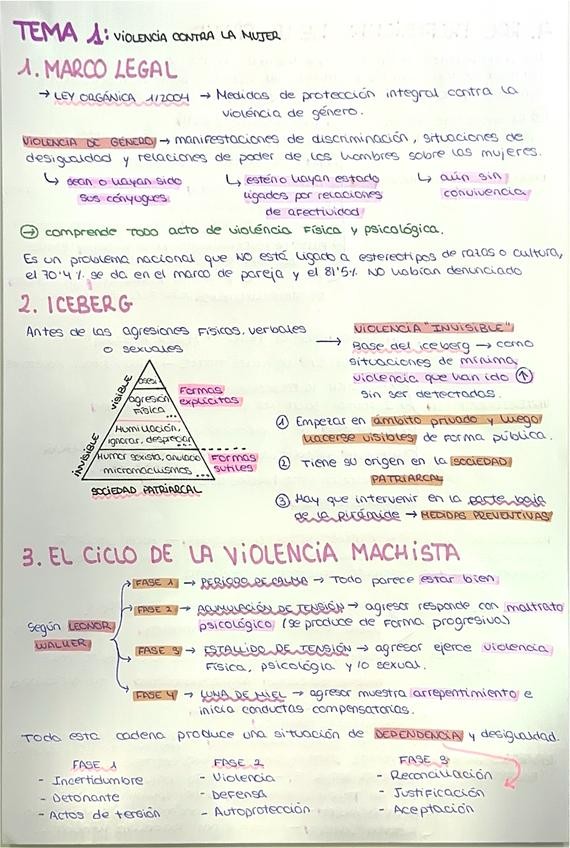 TEMA 1: VIOLENCIA CONTRA LA MUJER
1. MARCO LEGAL
→ LEY ORGÁNICA 1/2004 → Medidas de protección integral contra la
violencia de género.
VIOLENCIA DE GÉNERO → manifestaciones de discriminación, situaciones de
desigualdad y relaciones de poder de los hombres sobre las mujeres.
↳ sean o hayan sido
sus cónyugues
↳ estén o hayan estado
ligados por relaciones
de afectividad
↳ aún sin
convivencia
→ comprende TODO acto de violencia física y psicológica.
Es un problema nacional que NO está ligado a estereotipos de razas o cultura,
el 70'4% se da en el marco de pareja y el 81'5% NO habían denunciado
2. ICEBERG
Antes de las agresiones físicas, verbales
o sexuales
→ VIOLENCIA "INVISIBLE"
Base del iceberg → como
situaciones de mínima
violencia que han ido ↑
sin ser detectadas.
VISIBLE
INVISIBLE
asesi
agresión
física
...
Humillación,
ignorar, despreciar
Humor sexista,
micromachismos
...
Formas
explícitas
Formas
sutiles
SOCIEDAD PATRIARCAL
① Empezar en ámbito privado y luego
hacerse visibles de forma pública.
② Tiene su origen en la SOCIEDAD
PATRIARCAL
③ Hay que intervenir en la parte baja
de la pirámide → MEDIDAS PREVENTIVAS
3. EL CICLO DE LA VIOLENCIA MACHISTA
Según LEONOR
WALKER
FASE 1 → PERIODO DE CALMA → Todo parece estar bien
FASE 2 → ACUMULACIÓN DE TENSIÓN → agresor responde con maltrato
psicológico (se produce de forma progresiva)
FASE 3 → ESTALLIDO DE TENSIÓN → agresor ejerce violencia
física, psicológia y/o sexual.
FASE 4 → LUNA DE MIEL → agresor muestra arrepentimiento e
inicia conductas compensatorias.
Toda esta cadena produce una situación de DEPENDENCIA y desigualdad.
FASE 1
- Incertidumbre
- Detonante
- Actos de tensión
FASE 2
- Violencia
- Defensa
- Autoprotección
FASE 3
- Reconciliación
- Justificación
- Aceptación